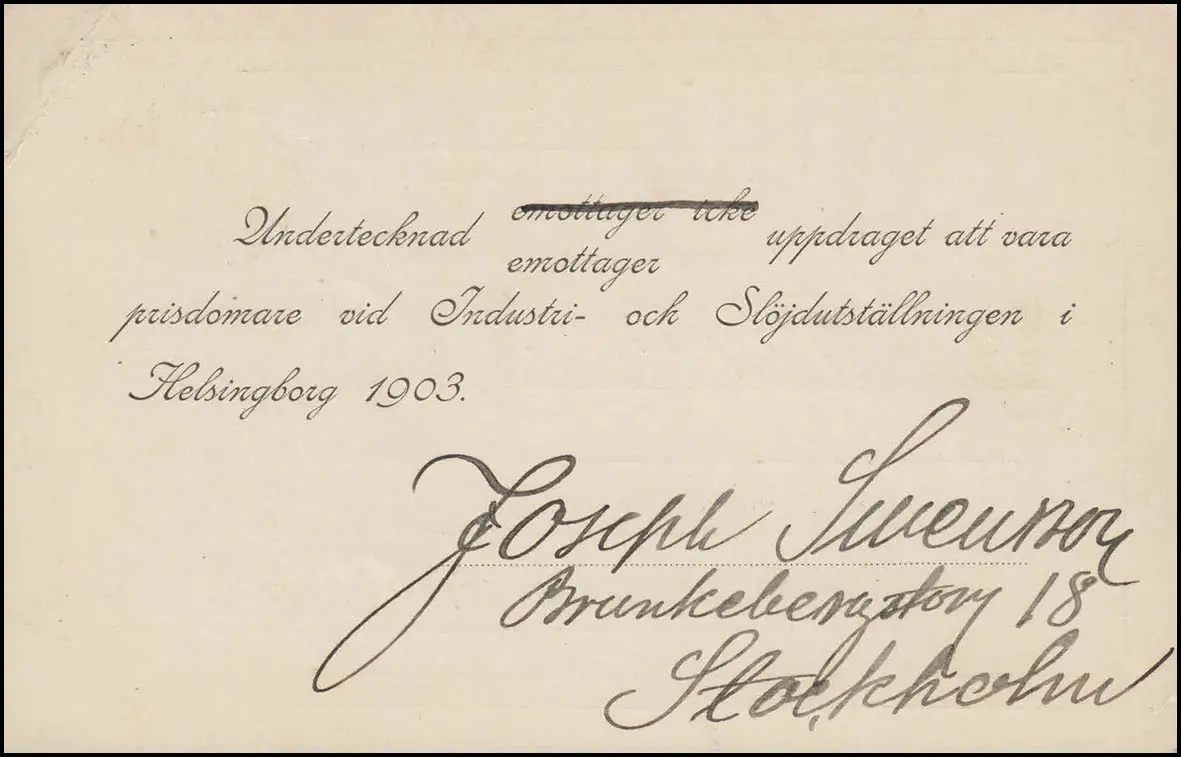 emottager icke
Undertecknad uppdraget att vara
emottager
prisdomare vid Industri- och Slöjdutställningen i
Helsingborg 1903.
Joseph Swensson
Brunkebergstorg 18
Stockholm